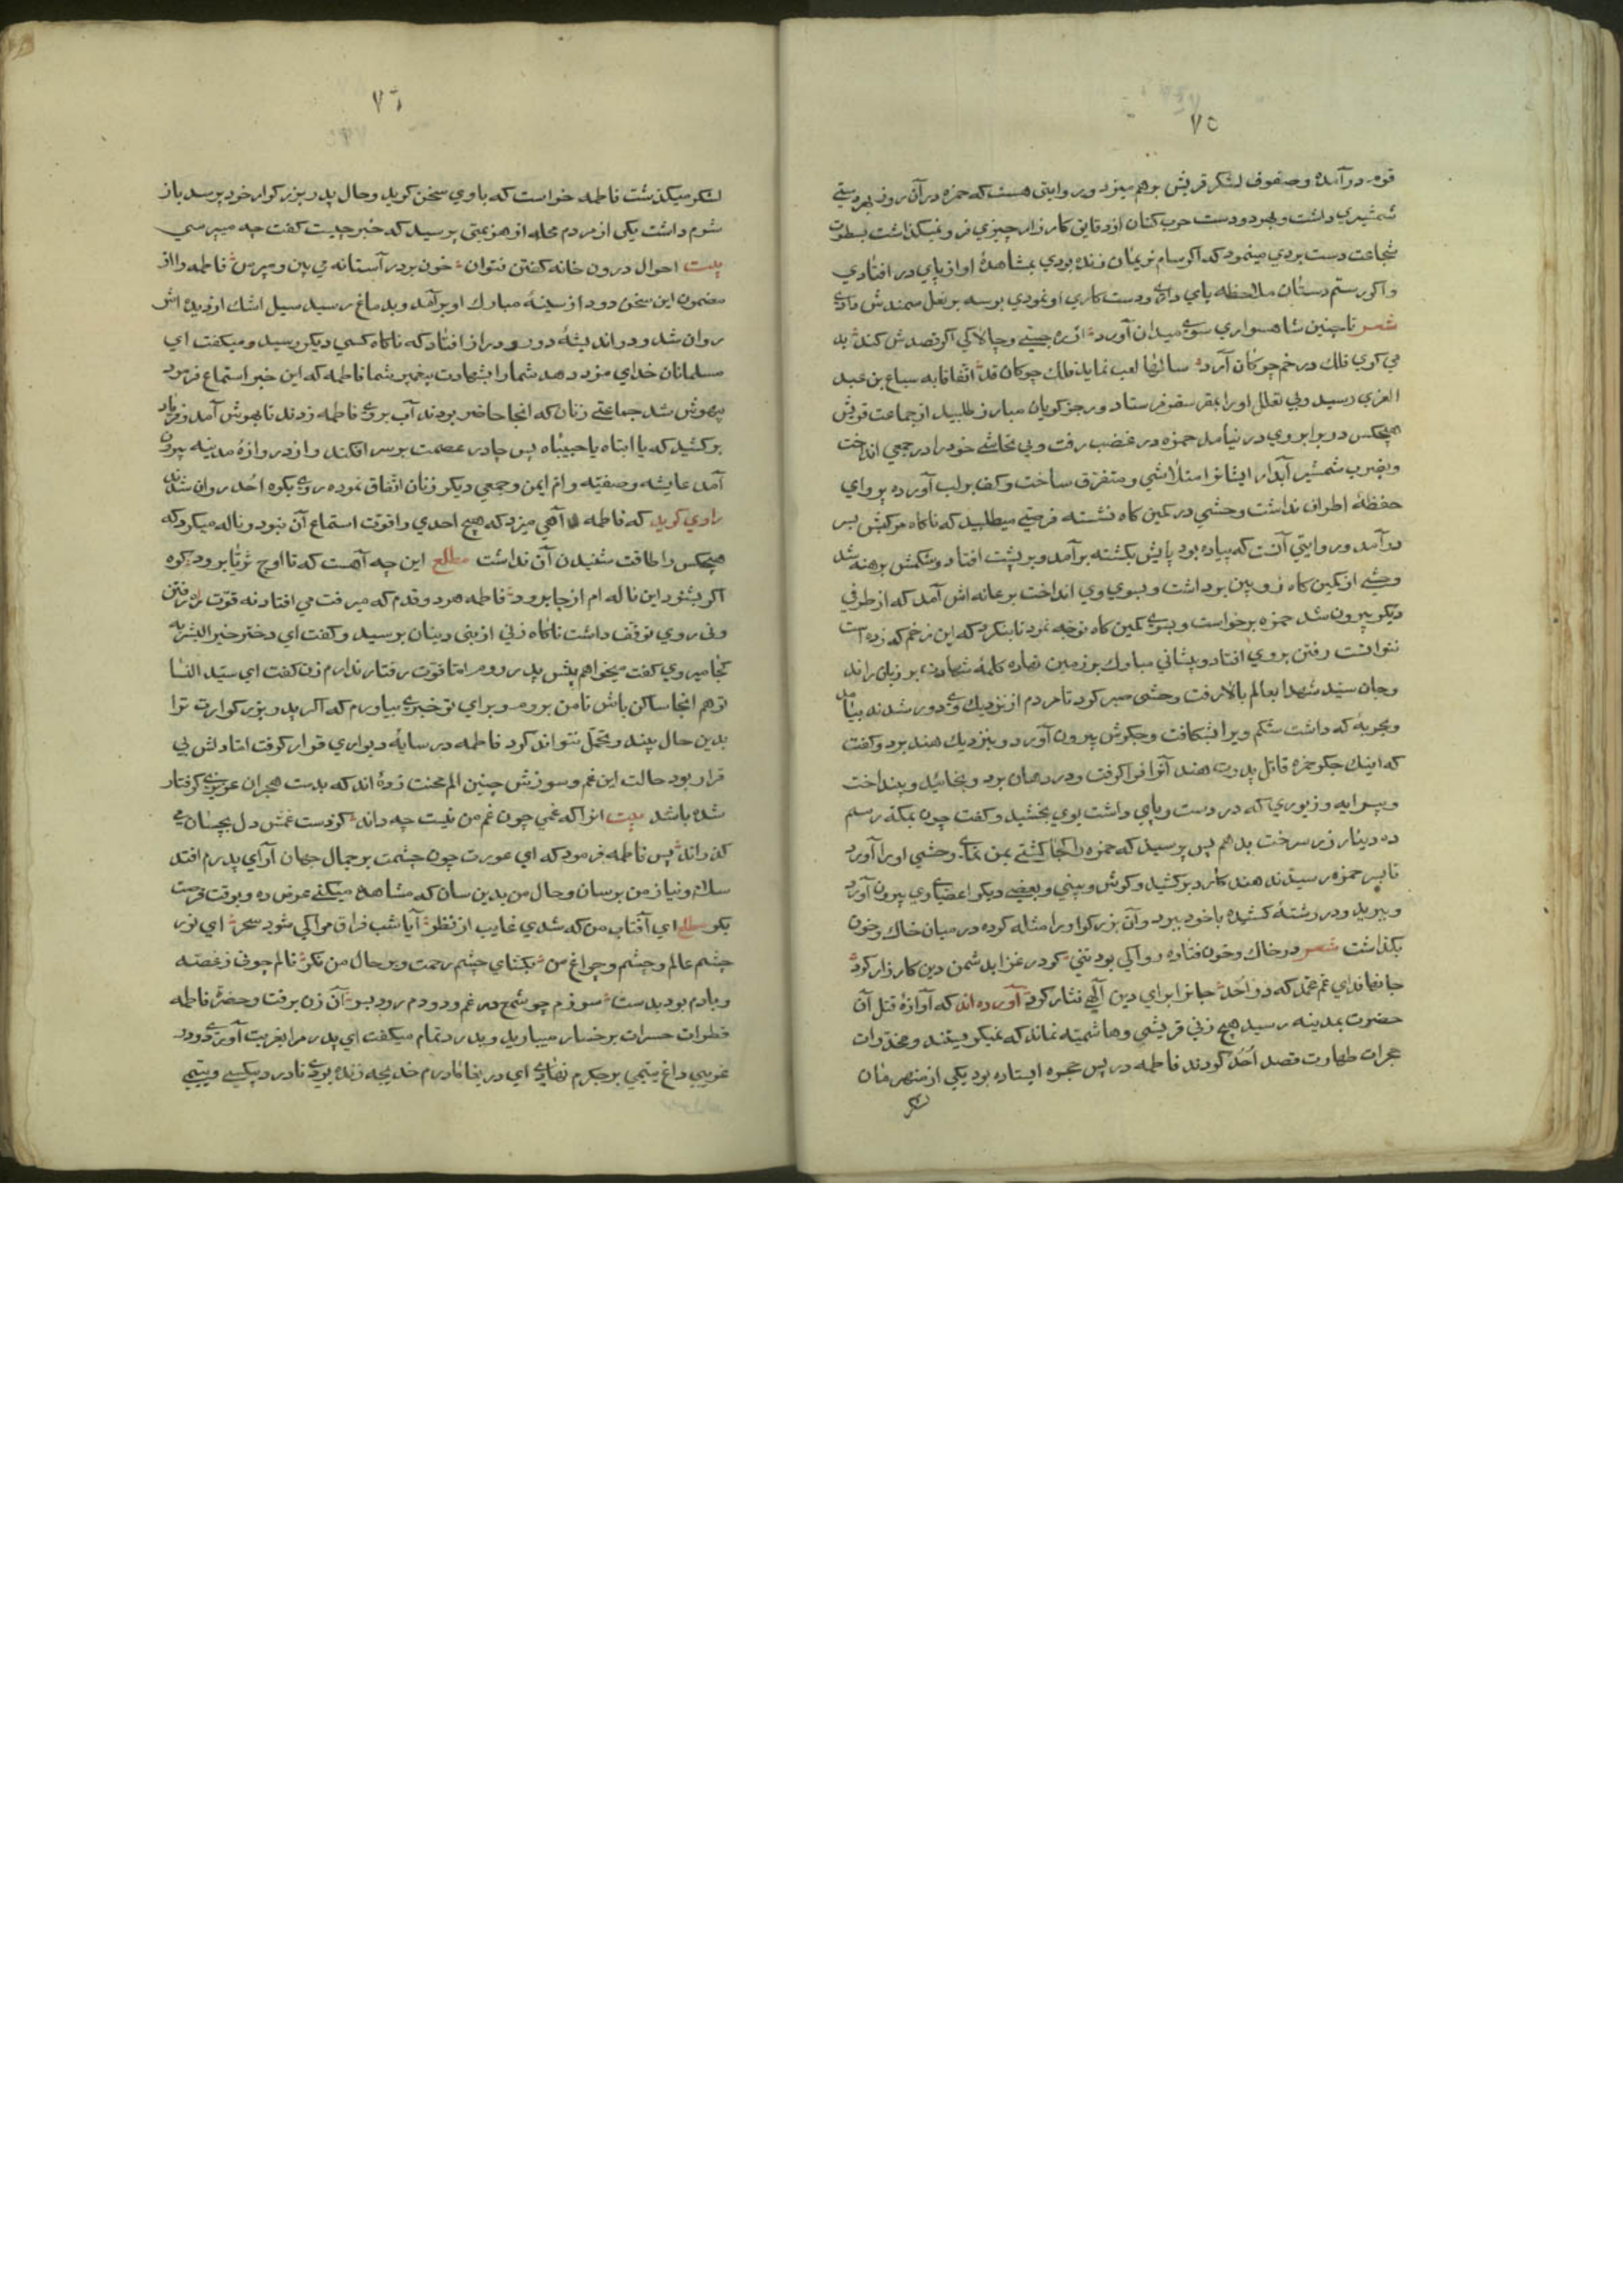 ٧٥
قوه درآمده وصفوف لشكر قريش برهم ميزد ودر روايتى هست كه حمزه در آن روز بهر دستي
شمشيري داشت وبهر دو دست حرب كنان از دقايق كارزار چيزي فرو نميكذاشت بسطوت
شجاعت دست بردي مينمود كه اكر سام نريمان زنده بودي بمشاهدهٔ او از پاي در افتادي
واكر رستم دستان ملاحظه پاي داري ودست كاري او نمودي بوسه بر نعل سمندش دادي
شعر تا چنين شاهسواري سوي ميدان آورد از ره چستي وچالاكي اكر قصدش كند
بي كوي فلك در خم چوكان آرد سالها لعب نمايد فلك چوكان قد اتفاقا به سباع بن عبد
العزي رسيد وبي تعلل اورا بقعر سقر فرستاد ورجز كويان مبارز طلبيد از جماعت قريش
هيچكس در برابر وي در نيامد حمزه در غضب رفت وبي تحاشي خود را در جمعي انداخت
وبضرب شمشير آبدار ايشانرا متلاشي ومتفرق ساخت وكف بر لب آورده پرواي
حفظهٔ اطراف نداشت وحشي در كمين كاه نشسته فرصتي ميطلبيد كه ناكاه مركبش بسر
درآمد وروايتي آنست كه پياده بود پايش بكشته برآمد وبر پشت افتاد وشكمش برهنه شد
وحشي از كمين كاه زوبين برداشت وبسوي وي انداخت بر عانه اش آمد كه از طرفي
ديكر بيرون شد حمزه برخواست وبسوي كمين كاه توجه نمود تا بنكرد كه اين زخم كه زده است
نتوانست رفتن بروي افتاد وپيشاني مبارك بر زمين نهاده كلمهٔ شهادت بر زبان راند
وجان سيد شهدا بعالم بالا رفت وحشى صبر كرد تا مردم از نزديك وي دور شدند بيامد
وبحربهٔ كه داشت شكم ويرا بشكافت وجكرش بيرون آورد وبنزديك هند برد وكفت
كه اينك جكر حمزه قاتل پدرت هند آنرا فرا كرفت ودر دهان برد وبخائيد وبينداخت
وپيرايه وزيوري كه در دست وپاي داشت بوي بخشيد وكفت چون بمكه رسم
ده دينار زر سرخت بدهم پس پرسيد كه حمزه را كجا كشتي بمن نماي وحشي او را آورد
تا بسر حمزه رسيدند هند كارد بركشيد وكوش وبيني وبعضي ديكر اعضاي وي بيرون آورد
وببريد ودر رشتهٔ كشيده با خود ببرد وآن بزركوار را مثله كرده در ميان خاك وخون
بكذاشت شعر در خاك وخون فتاده روا كي بود تني كو در غزا بدشمن دين كارزار كرد
جانها فداي غم محمد كه در احد جانرا براي دين آلهي نثار كرد آورده اند كه آوازهٔ قتل آن
حضرت بمدينه رسيد هيچ زني قريشي وهاشميه نماند كه نميكريستند ومخدرات
حجرات طهارت قصد اُحُد كردند فاطمه در پس حجره ايستاده بود يكي از منهزمان
لشكر
٧٦
لشكر ميكذشت فاطمه خواست كه با وي سخن كويد وحال پدر بزركوار خود پرسد باز
شرم داشت يكى از مردم محله از هزيمتى پرسيد كه خبر چيست كفت چه ميپرسي
بيت احوال درون خانه كفتن نتوان خون بر در آستانه مي بين ومپرس فاطمه را از
مضمون اين سخن دود از سينهٔ مبارك او برآمد وبدماغ رسيد سيل اشك از ديدهٔ اش
روان شد ودر انديشهٔ دور ودراز افتاد كه ناكاه كسي ديكر رسيد وميكفت اي
مسلمانان خداي مزد دهد شما را بشهادت پيغمبر شما فاطمه كه اين خبر استماع فرمود
بيهوش شد جماعتي زنان كه انجا حاضر بودند آب بروي فاطمه زدند تا بهوش آمد وفرياد
بركشيد كه يا ابتاه يا حبيباه پس چادر عصمت بر سر افكند واز دروازهٔ مدينه بيرون
آمد عايشه وصفيه وام ايمن وجمعي ديكر زنان اتفاق نموده روي بكوه اُحُد روان شدند
راوي كويد كه فاطمه آهي ميزد كه هيچ احدي را قوت استماع آن نبود وناله ميكرد كه
هيچكس را طاقت شنيدن آن نداشت مطلع اين چه آهست كه تا اوج ثريا برود كوه
اكر بشنود اين ناله ام از جا برود فاطمه هر دو قدم كه ميرفت مي افتاد نه قوت راه رفتن
وني روي توقف داشت ناكاه زني از بني دينان برسيد وكفت اي دختر خير البشر به
كجا ميروي كفت ميخواهم پيش پدر روم اما قوت رفتار ندارم زن كفت اي سيد النسا
تو هم انجا ساكن باش تا من بروم وبراي تو خبري بياورم كه اكر پدر بزركوارت ترا
بدين حال بيند وتحمل نتواند كرد فاطمه در سايهٔ ديواري قرار كرفت اما دلش بي
قرار بود حالت اين غم وسوزش چنين الم محنت زدهٔ اند كه بدست هجران عزيزي كرفتار
شده باشد بيت انرا كه غمي چون غم من نيست چه داند كز دست غمش دل بچسان مي
كذراند پس فاطمه فرمود كه اي عورت چون چشمت بر جمال جهان آراي پدرم افتد
سلام ونياز من برسان وحال من بدين سان كه مشاهده ميكني عرض ده وبوقت فرصت
بكو مطلع اي آفتاب من كه شدي غايب از نظر آيا شب فراق مرا كي شود سحر اي نور
چشم عالم وچشم وچراغ من بكشاي چشم رحمت وبر حال من نكر نالم چو في ز غصه
وبادم بود بدست سوزم چو شمع در غم ودودم رود بسر آن زن برفت وحضرت فاطمه
قطرات حسرات بر خسار ميباريد وبدرد تمام ميكفت اي پدر مرا بغربت آوردي ودرد
غريبي داغ يتيمي بر جكرم نهادي اي دريغا مادرم خديجه زنده بودي تا در بيكسي ويتيمي